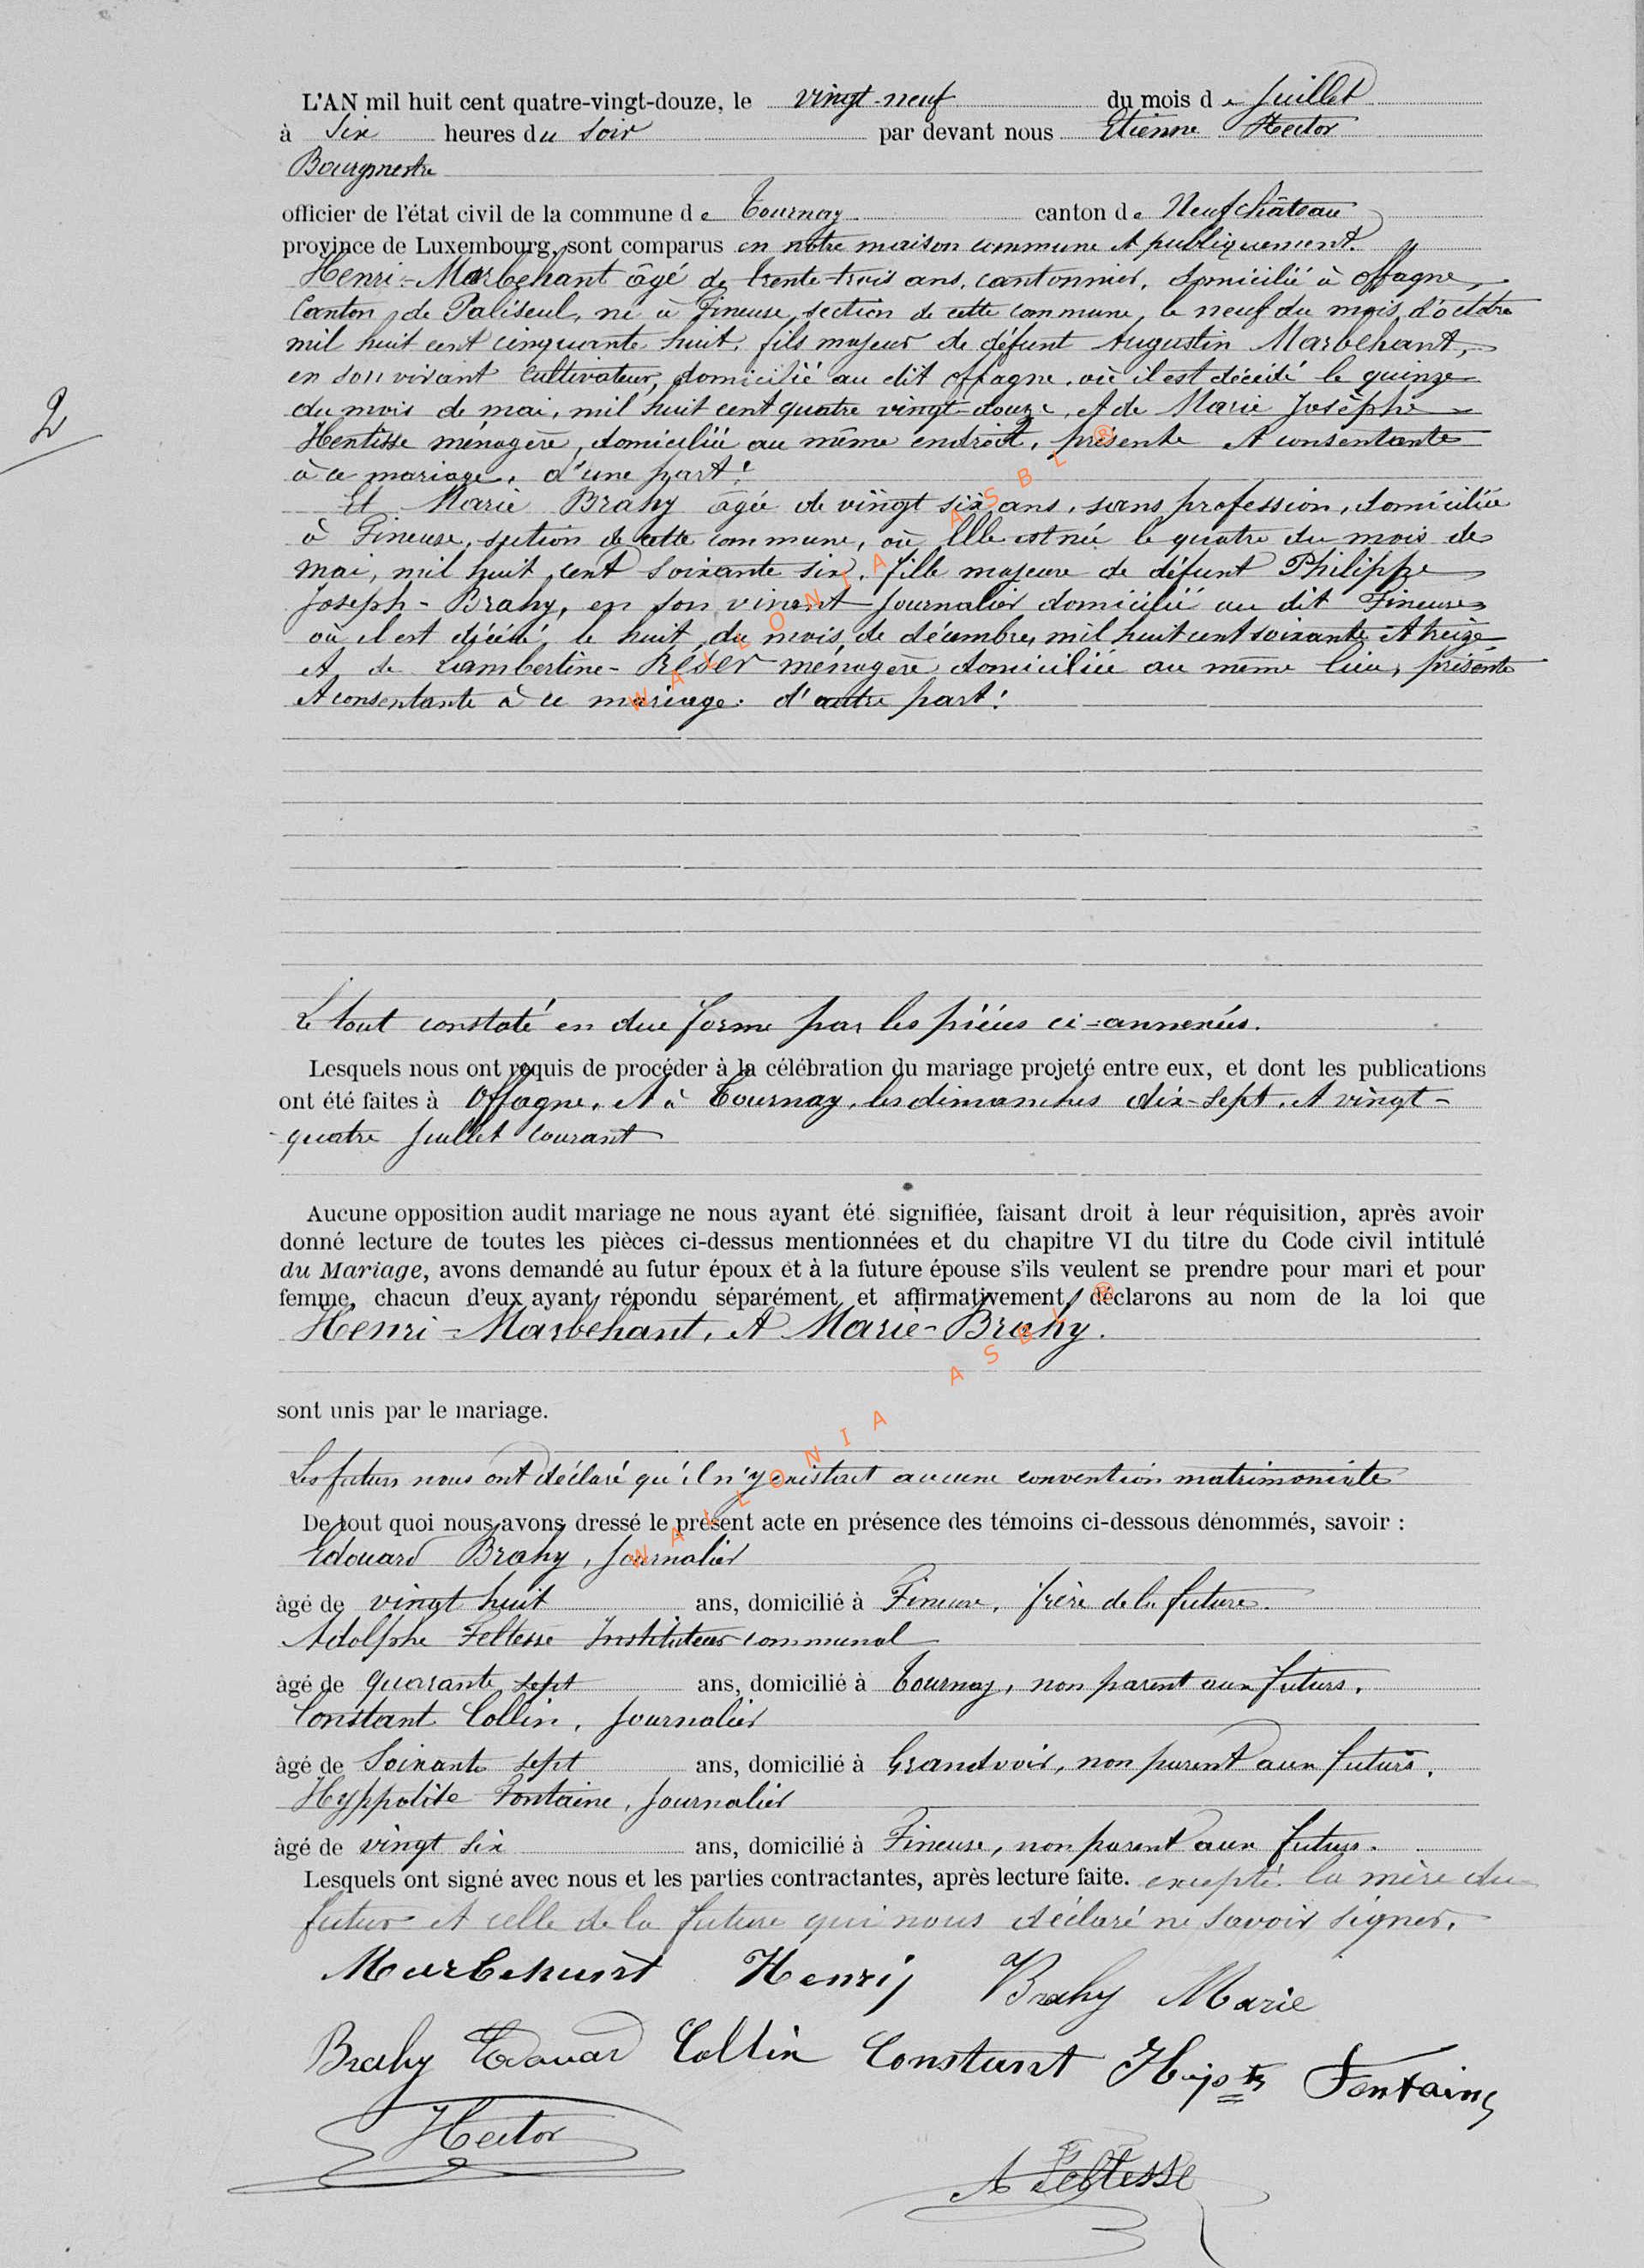 L'AN mil huit cent quatre-vingt-douze, le vingt-neuf du mois de Juillet
à Six heures du Soir par devant nous Etienne Hector
Bourgmestre
officier de l'état civil de la commune de Tournay canton de Neufchâteau
province de Luxembourg, sont comparus en notre maison commune et publiquement.
Henri-Marbehant âgé de trente-trois ans, cantonnier, domicilié à Offagne,
Canton de Paliseul, né à Fineuse, section de cette commune, le neuf du mois d'octobre
mil huit cent cinquante huit, fils majeur de défunt Augustin Marbehant,
en son vivant Cultivateur, domicilié au dit Offagne, où il est décédé le quinze
2
du mois de mai, mil huit cent quatre vingt-douze, et de Marie Josèphe
Hentisse ménagère, domiciliée au même endroit, présente et consentante
à ce mariage, d'une part!
Et Marie Brahy âgée de vingt six ans, sans profession, domiciliée
à Fineuse, section de cette commune, où Elle est née le quatre du mois de
Mai, mil huit cent soixante six, fille majeure de défunt Philippe
Joseph-Brahy, en son vivant Journalier domicilié au dit Fineuse
où il est décédé, le huit du mois de décembre, mil huit cent soixante et treize
et de Lambertine-Réser ménagère domiciliée au même lieu, présente
et consentante à ce mariage. d'autre part!
WALLONIA ASBL ®
Le tout constaté en due forme par les pièces ci-annexées.
Lesquels nous ont requis de procéder à la célébration du mariage projeté entre eux, et dont les publications
ont été faites à Offagne, et à Tournay, les dimanches dix-sept, et vingt-
quatre Juillet courant
Aucune opposition audit mariage ne nous ayant été signifiée, faisant droit à leur réquisition, après avoir
donné lecture de toutes les pièces ci-dessus mentionnées et du chapitre VI du titre du Code civil intitulé
du Mariage, avons demandé au futur époux et à la future épouse s'ils veulent se prendre pour mari et pour
femme, chacun d'eux ayant répondu séparément et affirmativement, déclarons au nom de la loi que
Henri-Marbehant, et Marie-Brahy.
sont unis par le mariage.
WALLONIA ASBL ®
Les futurs nous ont déclaré qu'il n'y existait aucune convention matrimoniale
De tout quoi nous avons dressé le présent acte en présence des témoins ci-dessous dénommés, savoir :
Edouard Brahy, Journalier
âgé de vingt huit ans, domicilié à Fineuse, frère de la future.
Adolphe Feltesse Instituteur communal
âgé de quarante sept ans, domicilié à Tournay, non parent aux futurs.
Constant Collin, Journalier
âgé de Soixante sept ans, domicilié à Grandvoir, non parent aux futurs.
Hyppolite Fontaine, Journalier
âgé de vingt six ans, domicilié à Fineuse, non parent aux futurs.
Lesquels ont signé avec nous et les parties contractantes, après lecture faite. excepté la mère du
futur et celle de la future qui nous déclaré ne savoir signer.
Marbehant Henrij Brahy Marie
Brahy Edouard Collin Constant Hyp^te Fontaine
Hector
A Feltesse